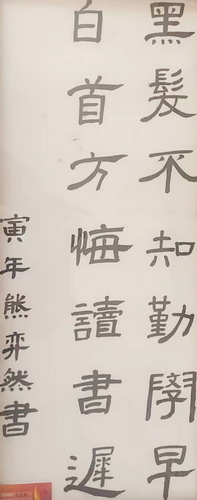 黑髮不知勤學早
白首方悔讀書遲
寅年熊弈然書